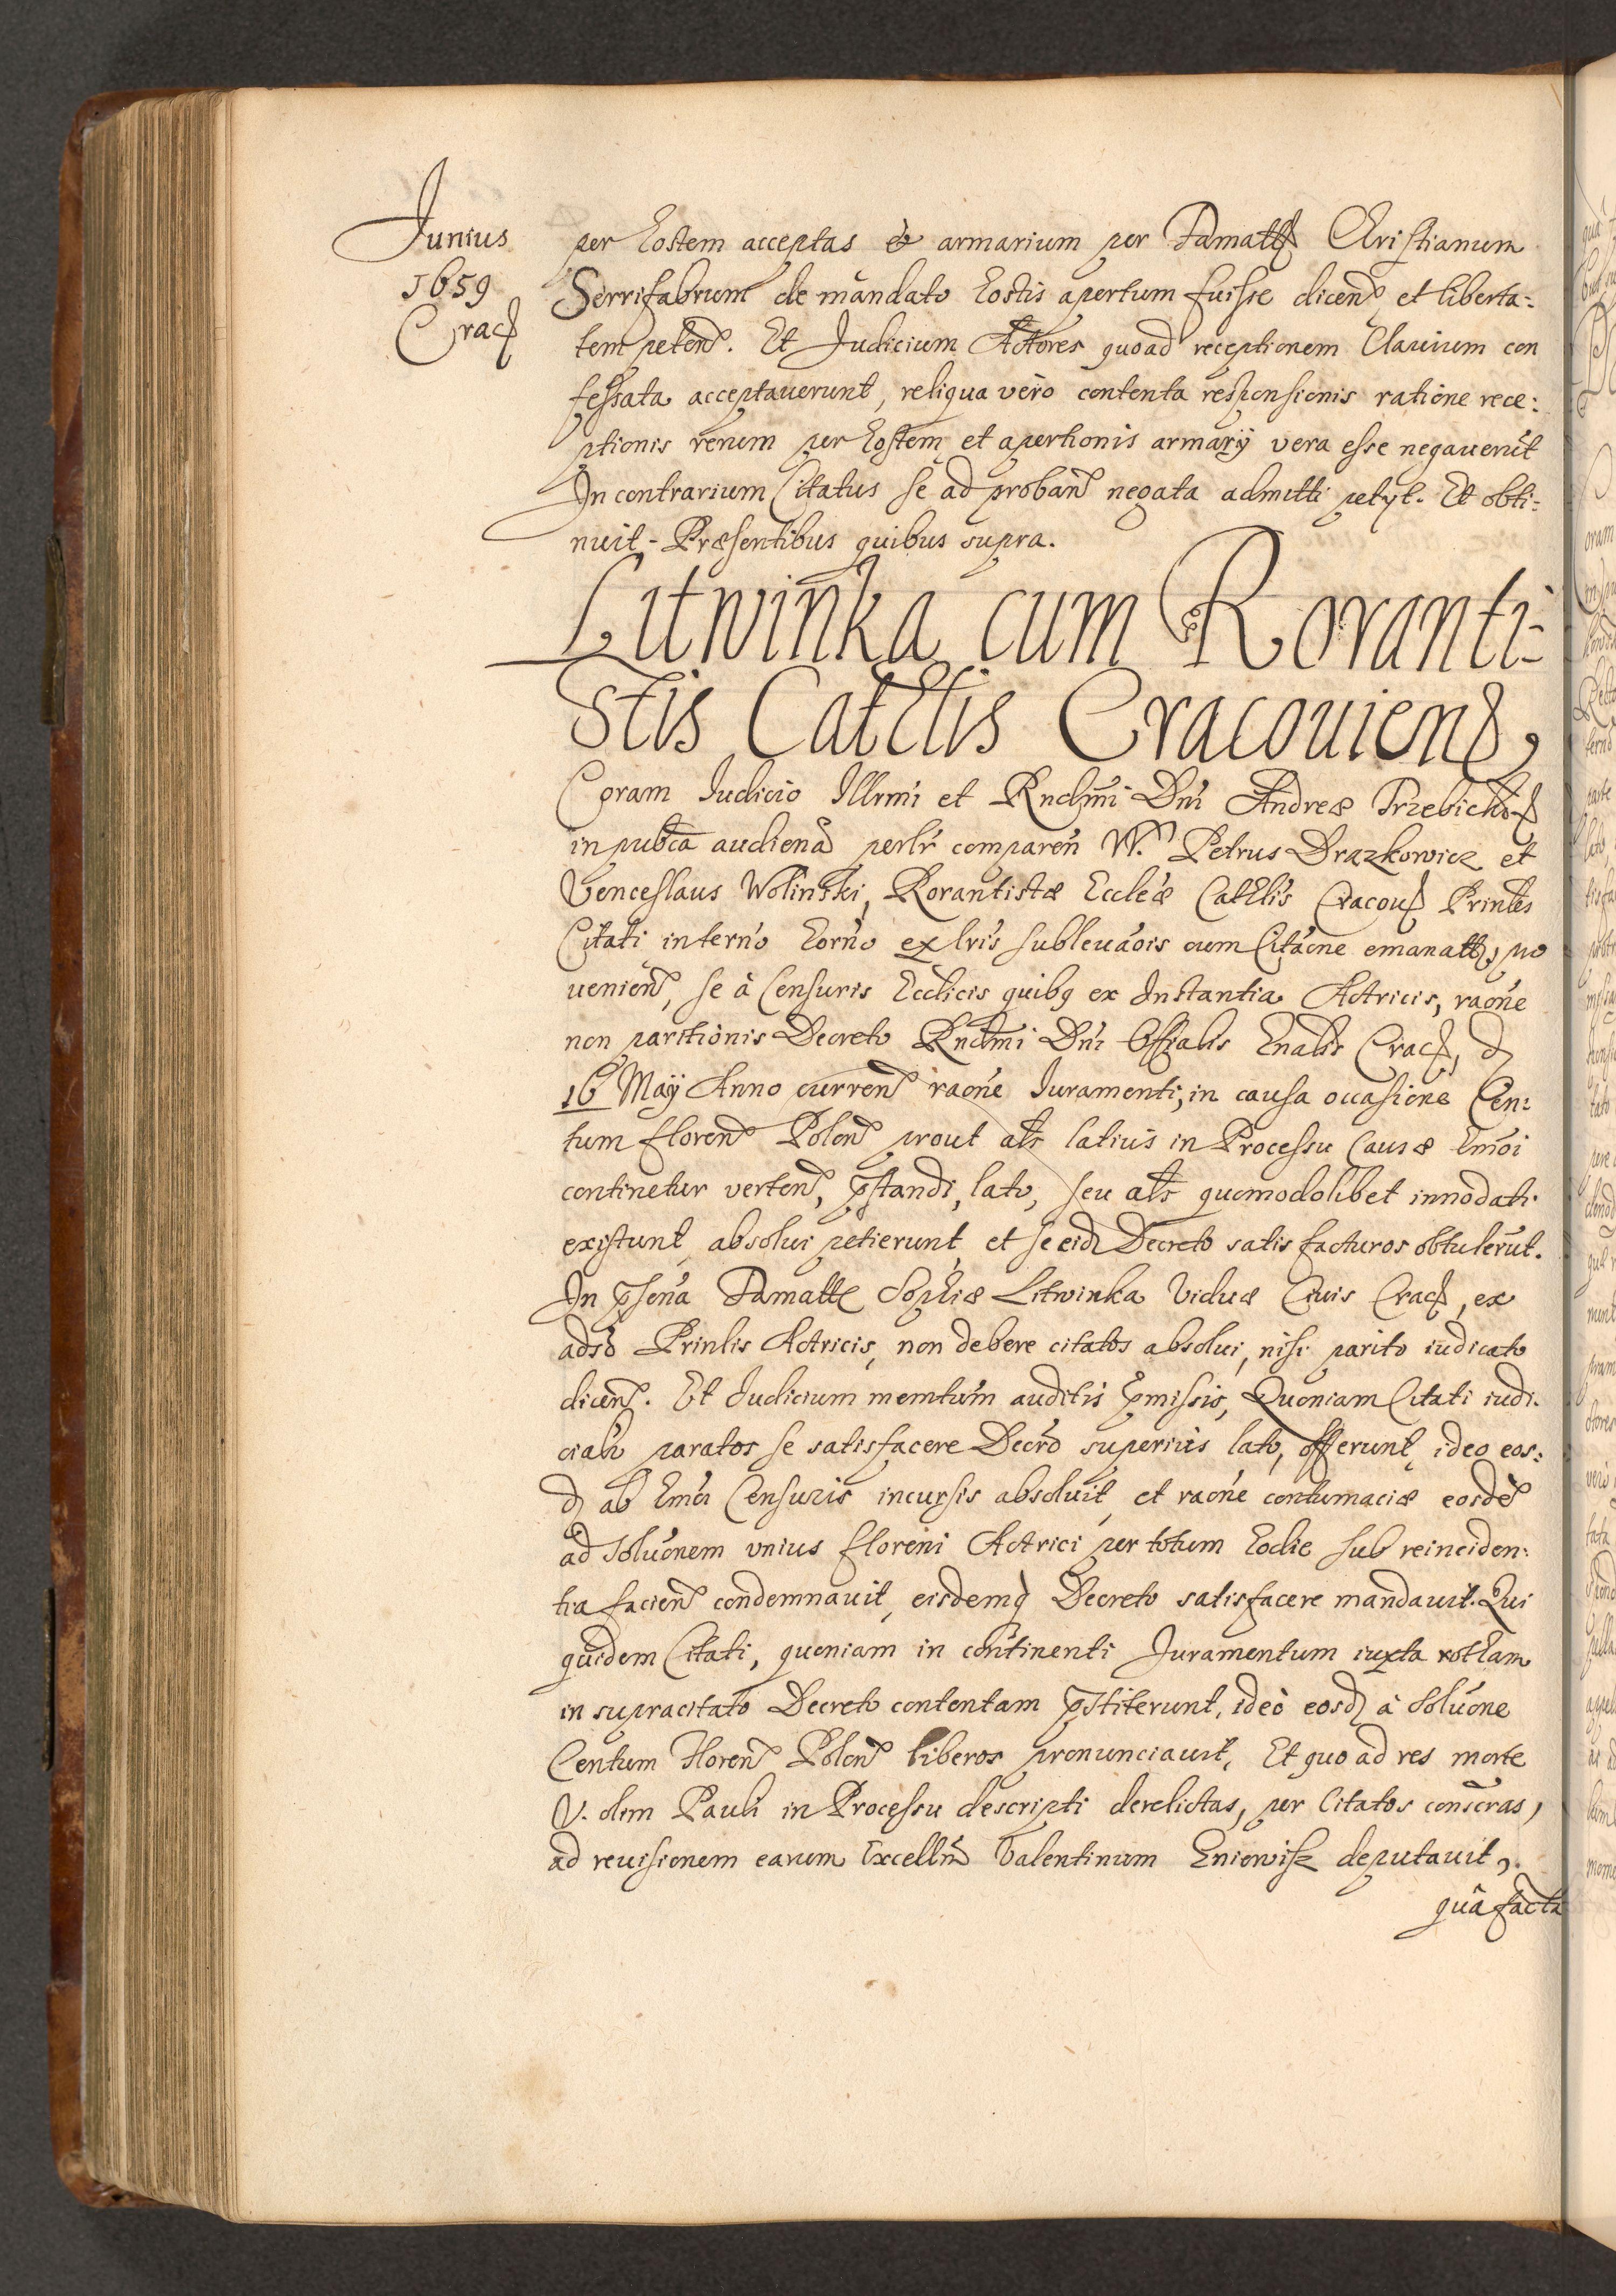 Junius
1659
Crac
per hostem acceptas & armarium per Famatt Christianum
Serrifabrum de mandato hostis apertum fuisse dicen et liberta=
tem peten. Et Judicium Actores quoad receptionem Clavium con
fessata acceptaverunt, reliqua vèro contenta responsionis ratione rece=
ptionis rerum per hostem et apertionis armarÿ vera esse negaverūt
In contrarium Citatus se ad proban negata admitti petyt. Et obti=
nuit - Præsentibus quibus supra.
Litwinka cum Roranti=
stis Cathlis Cracouien,
Coram Iudicio Illrmi et Rndmi Dni Andreæ Trzebicki
in pubca audiena perlr comparen W. Petrus Drazkowicz et
Venceslaus Wolinski, Rorantistæ Eccleæ Cathlis Cracou Prinles
Citati interno horno ex lris subleuaois cum Citaone emanatt, pro
uenien, se à Censuris Ecclicis quibq ex Instantia Actricis, raone
non paritionis Decreto Rndmi Dni Offialis Gnalis Crac, d
16 Maÿ Anno curren raone Iuramenti, in causa occasione Cen=
tum floren Polon prout als latius in Processu Causæ hmoi
continetur verten, pstandi, lato, seu als quomodolibet innodati
existunt absolui petierunt et se eid Decreto satis facturos obtulerūt.
In psena Famatte Sophiæ Litwinka Viduæ Civis Crac, ex
adso Prinlis Actricis, non debere citatos absolui, nisi parito iudicato
dicen. Et Iudicium memtum auditis pmissis, Quoniam Citati iudi=
ciali paratos se satisfacere Decro superius lato, offerunt, ideo eos=
d ab hmoi Censuris incursis absoluit, et raone contumaciæ eosdē
ad soluonem unius floreni Actrici per totum hodie sub reinciden=
tia facien condemnauit, eisdemq Decreto satisfacere mandauit. Qui
quidem Citati, quoniam in continenti Juramentum iuxta rotham
in supracitato Decreto contentam pstiterunt, ideò eosd à soluone
Centum Floren Polon liberos pronunciauit, Et quo ad res morte
V. olim Pauli in Processu descripti derelictas, per Citatos conseras,
ad reuisionem earum Excellm Valentinum deputauit,
quâ factâ